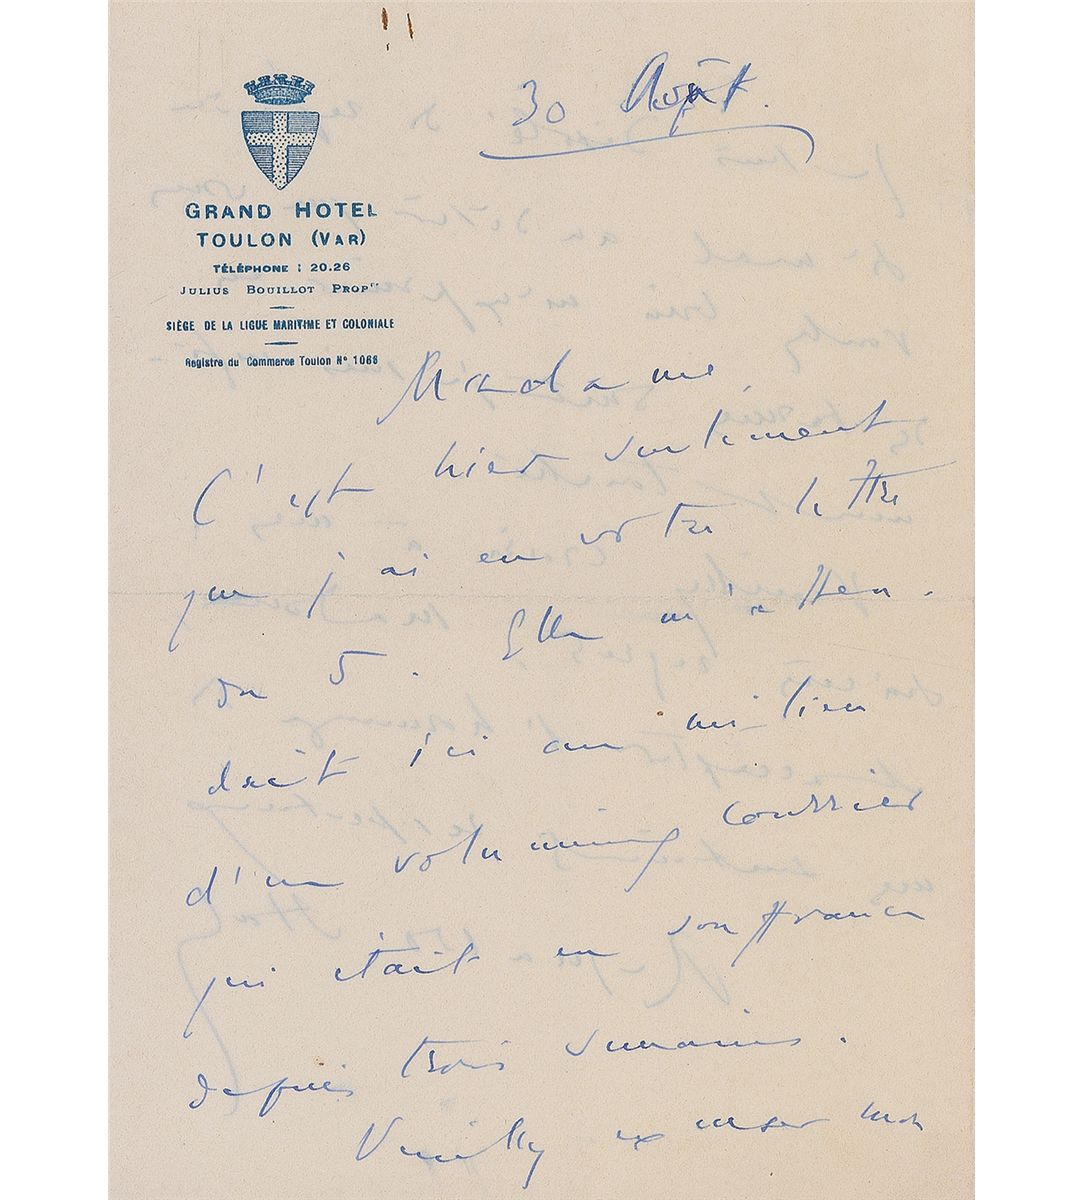 30 Août.
GRAND HOTEL
TOULON (VAR)
TÉLÉPHONE : 20.26
JULIUS BOUILLOT PROPre
SIÈGE DE LA LIGUE MARITIME ET COLONIALE
Registre du Commerce Toulon N° 1068
Madame,
C'est hier seulement
que j'ai eu votre lettre
du 5. Elle m'atten-
drait ici au milieu
d'un volumineux courrier
qui était en souffrance
depuis trois semaines.
Veuillez excuser mon